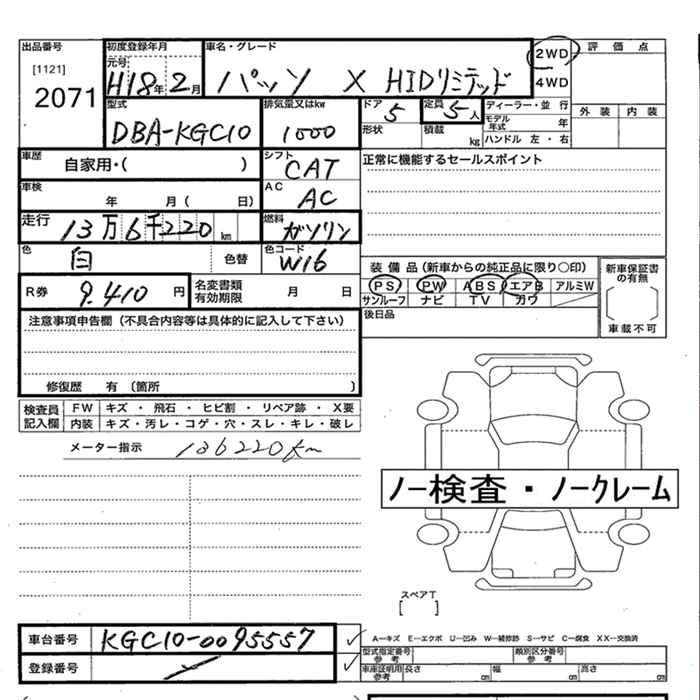 出品番号 初度登録年月 車名・グレード 2WD 評価点
[1121] 元号
2071 H18年2月 パッソ X HIDリミテッド 4WD
型式 排気量又はkw ドア 5 定員 5人 ディーラー・並行 外装 内装
DBA-KGC10 1000 形状 積載 kg モデル年式 年
ハンドル 左・右
車歴 自家用・( ) シフト CAT 正常に機能するセールスポイント
車検 年 月( 日) AC AC
走行 13万6千220km 燃料 ガソリン
色 白 色替 色コード W16
装備品(新車からの純正品に限り○印) 新車保証書の有無
R券 9.410円 名変書類有効期限 月 日 PS PW ABS エアB アルミW
サンルーフ ナビ TV カワ
注意事項申告欄(不具合内容等は具体的に記入して下さい) 後日品 車載不可
修復歴 有〔箇所 〕
検査員記入欄 FW キズ・飛石・ヒビ割・リペア跡・X要
内装 キズ・汚レ・コゲ・穴・スレ・キレ・破レ
メーター指示 136220km
ノー検査・ノークレーム
スペアT
[ ]
車台番号 KGC10-0095557 ✓ A-キズ E-エクボ U-凹み W-補修跡 S-サビ C-腐食 XX-交換済
型式指定番号 参考 類別区分番号 参考
登録番号 ✓ 車庫証明用 参考 長さ ㎝ 幅 ㎝ 高さ ㎝